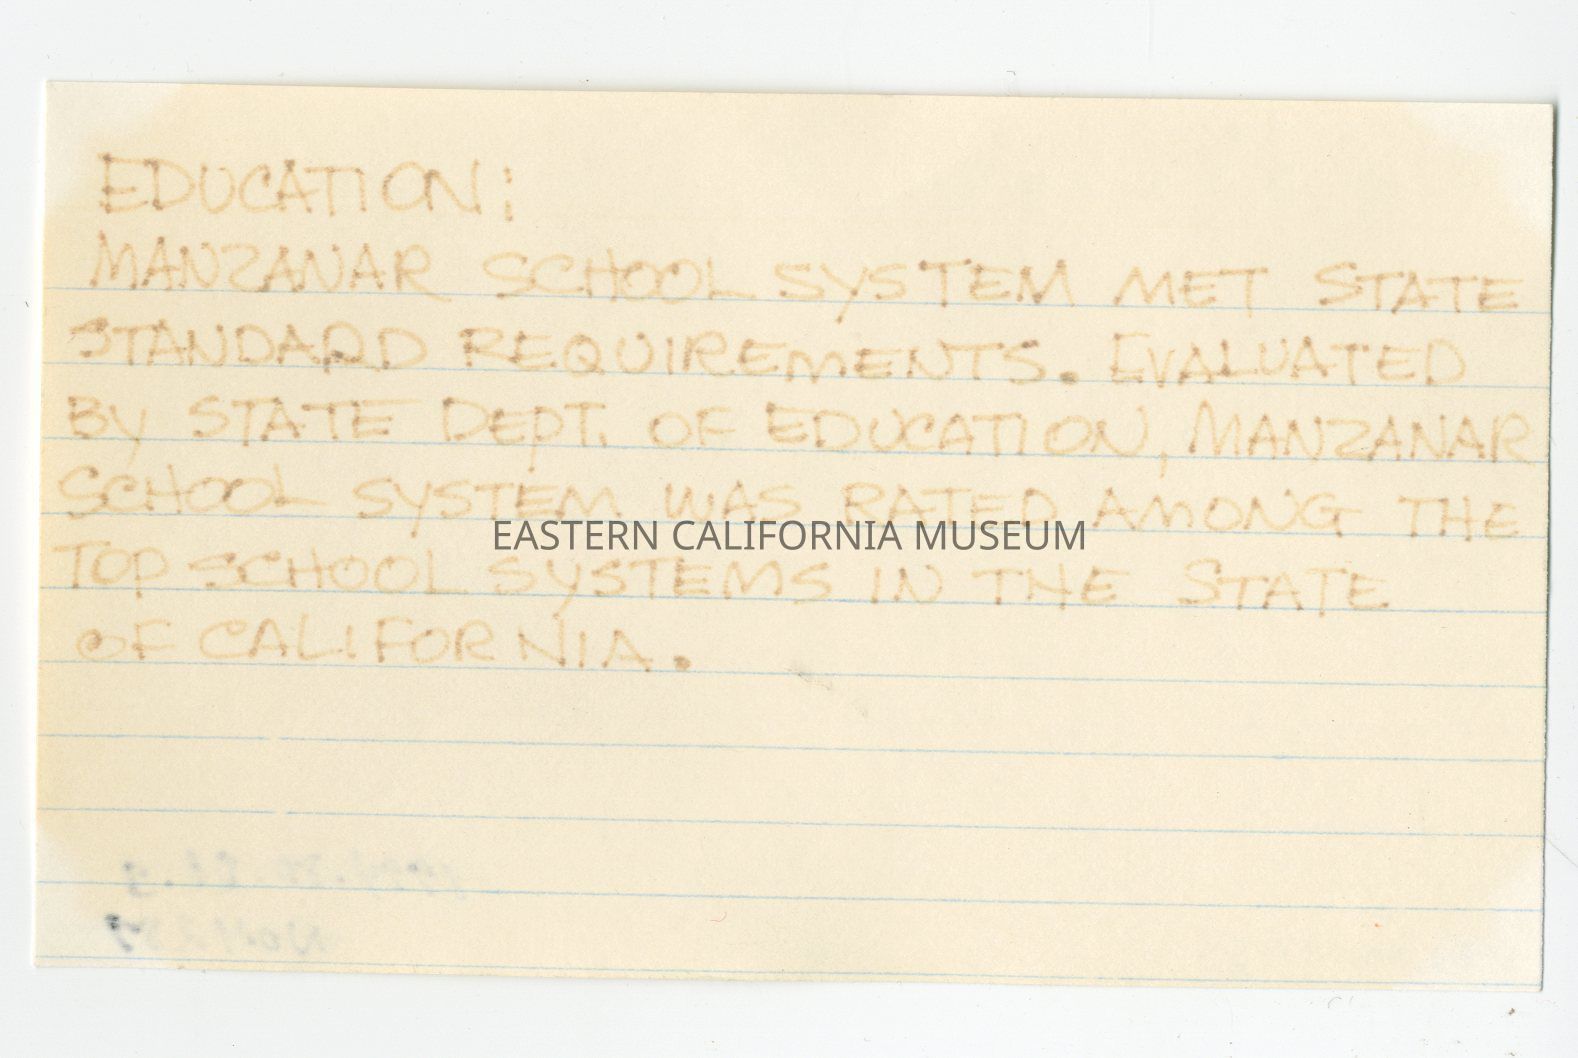 EDUCATION:
MANZANAR SCHOOL SYSTEM MET STATE
STANDARD REQUIREMENTS. EVALUATED
BY STATE DEPT. OF EDUCATION, MANZANAR
SCHOOL SYSTEM WAS RATED AMONG THE
EASTERN CALIFORNIA MUSEUM
TOP SCHOOL SYSTEMS IN THE STATE
OF CALIFORNIA.